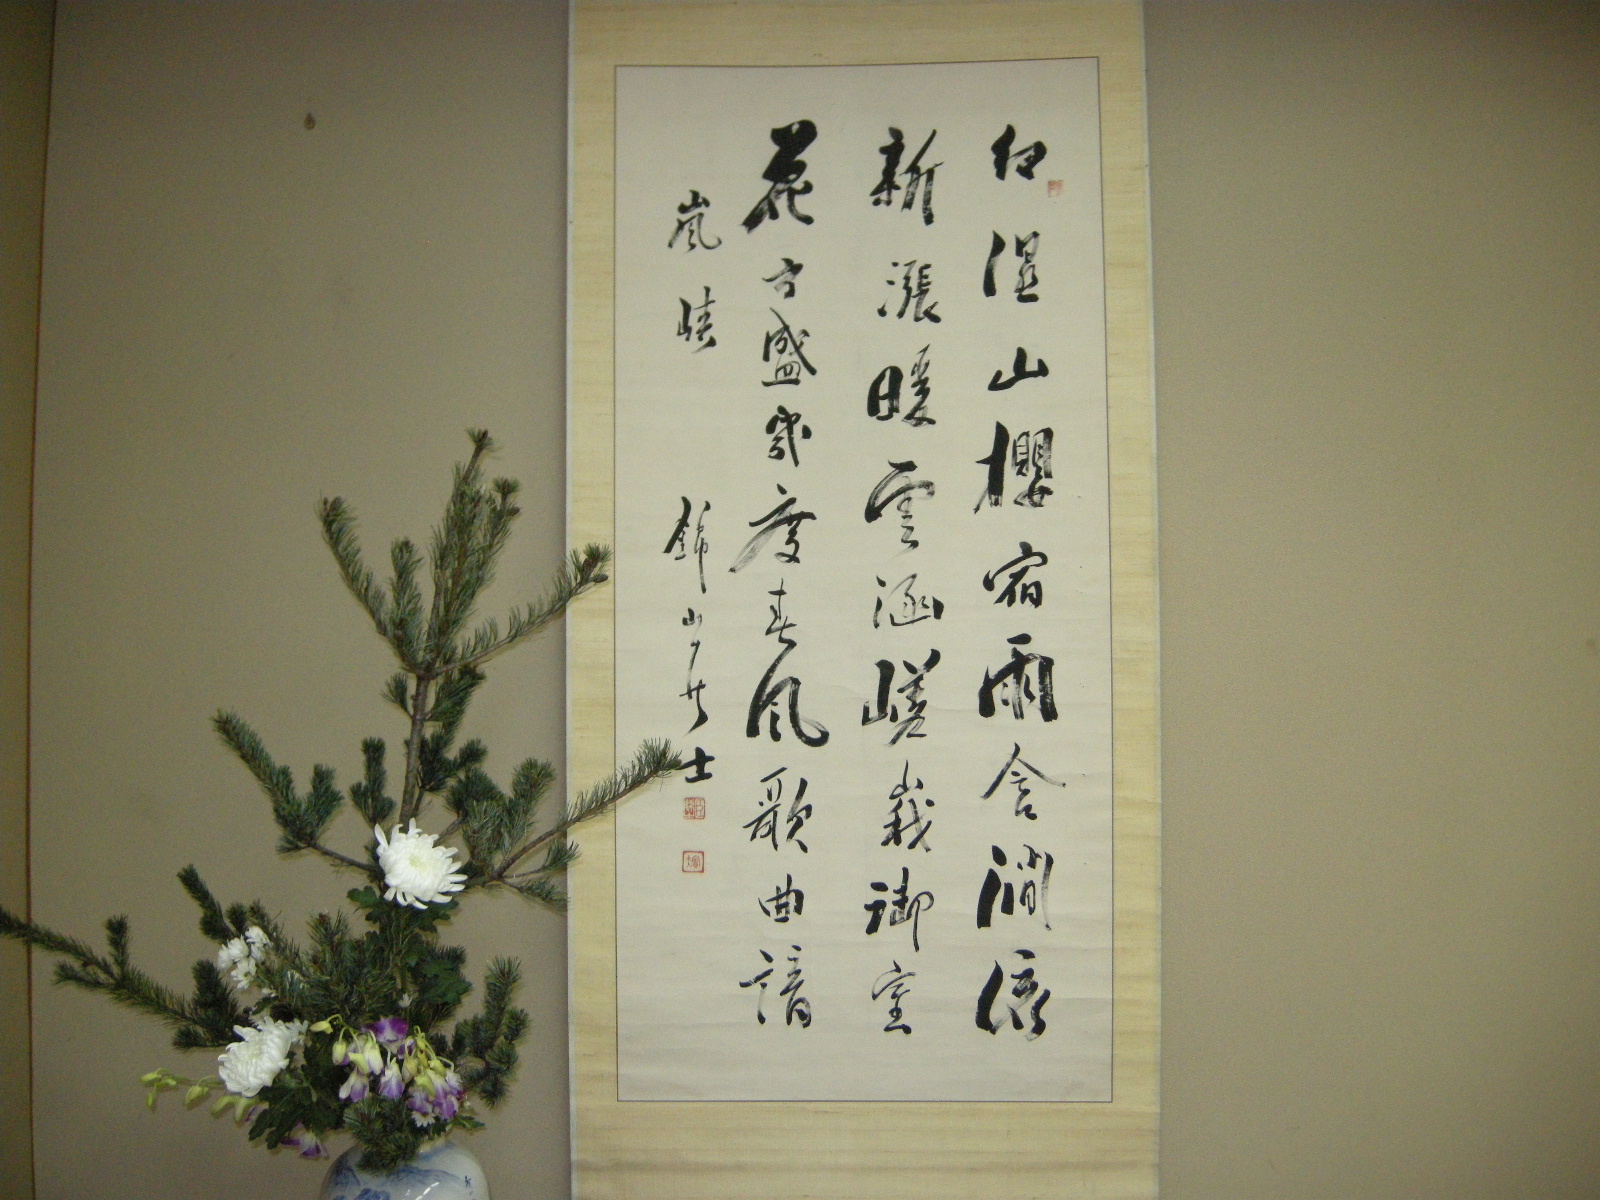 紅湿山櫻宿雨含澗流
新漲暖雲涵嵯峩御室
花方盛幾度春風歌曲諳
嵐峡
錦山居士